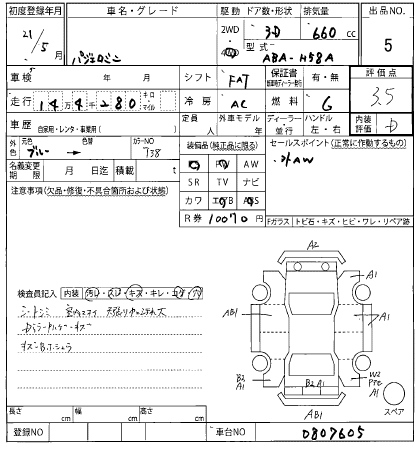 初度登録年月 車名・グレード 駆動 ドア数・形状 排気量 出品NO.
21/5月 パジェロミニ 2WD 4WD 3D 660 cc 5
型式 ABA-H58A
車検 年 月 シフト FAT 保証書 有・無 評価点
走行 14万4千280 キロ・マイル 冷房 AC 燃料 G 3.5
車歴 自家用・レンタ・事業用( ) 定員 人 外車モデル 年 ディーラー・並行 ハンドル 左・右 内装評価 D
外色 元色 ブルー 色替 カラーNO 738 装備品(純正品に限る) セールスポイント(正常に作動するもの)
名義変更期限 月 日迄 積載 t AW ・外AW
注意事項(欠品・修復・不具合箇所および状態) SR TV ナビ
カワ ABS
R券 10070 円 Fガラス トビ石・キズ・ヒビ・ワレ・リペア跡
A2
A1
検査員記入 内装 汚レ・スレ・キズ・キレ・コゲ・穴
シートシミ
AB1 A1
B2 A1 B2 A1 W2 Pre A1 A1
AB1 スペア
長さ cm 幅 cm 高さ cm
登録NO 車台NO. 0807605